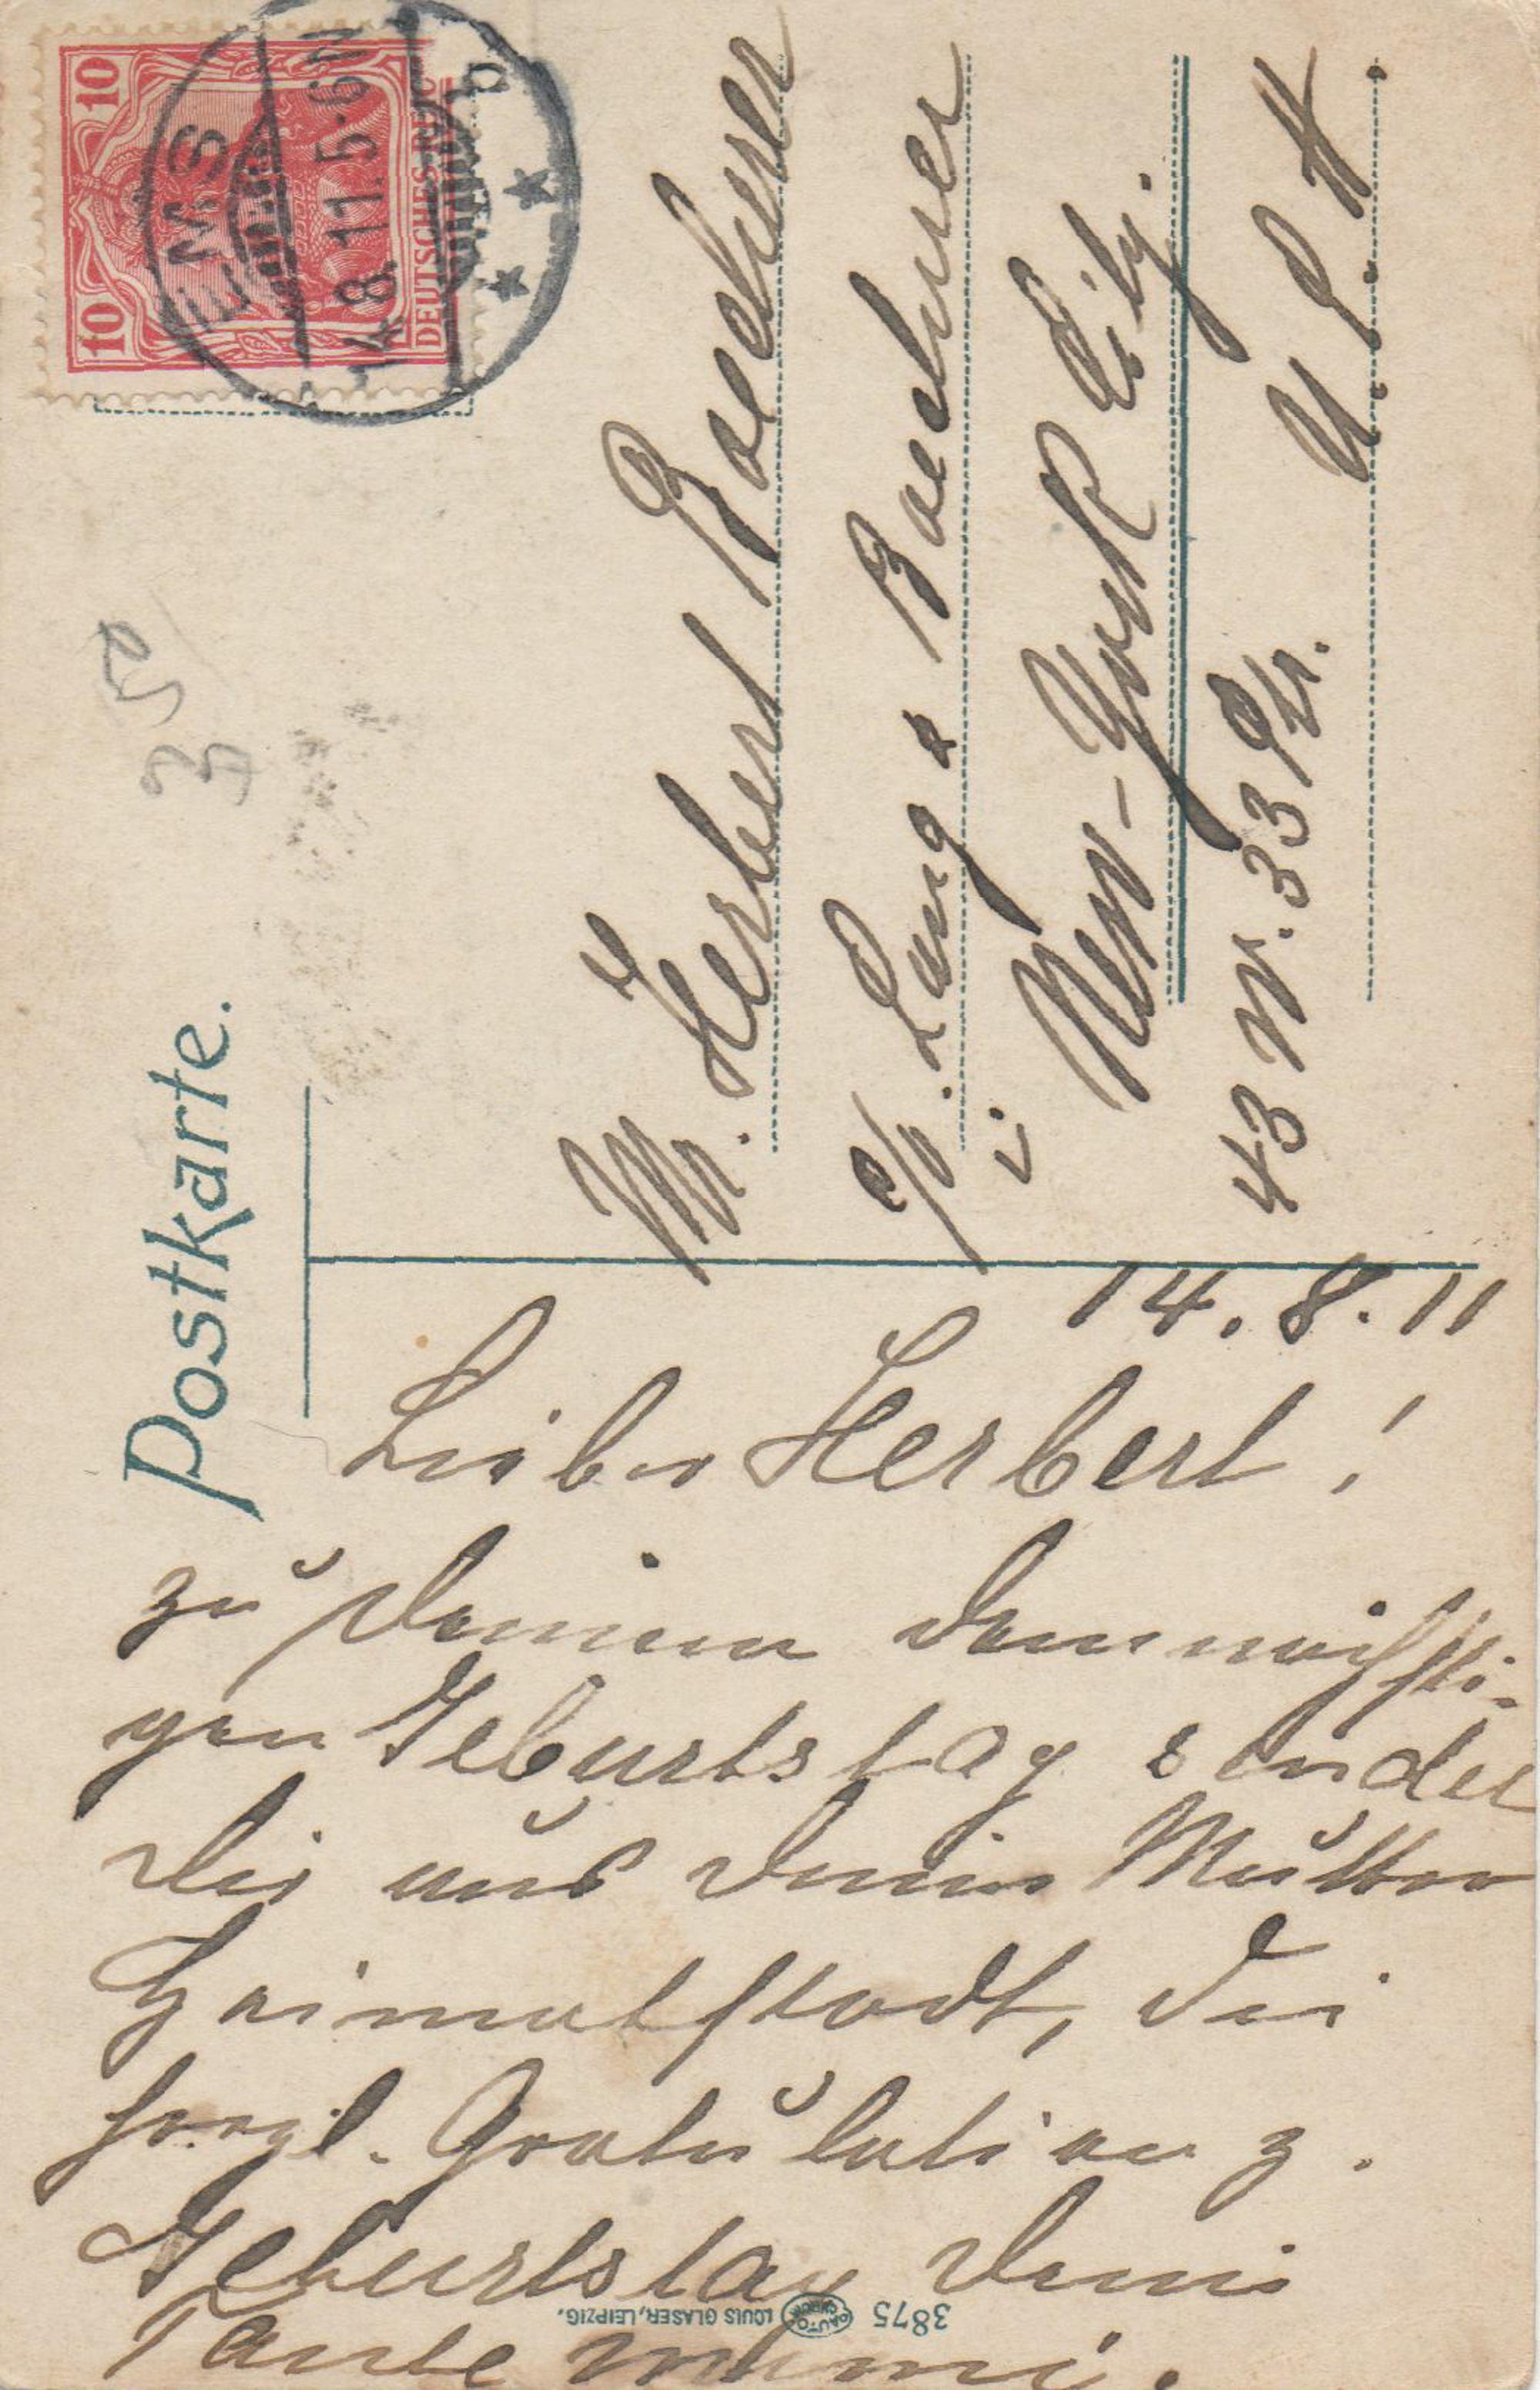 Postkarte.
10 10
DEUTSCHES REICH
EMS
14.8.11.5-6N
b
Mr. Herbert Boedner
c/o. Lang & Boedner
i New-York City.
43 W. 33 Str. U.S.A.
14.8.11
Lieber Herbert!
zu Deinem demnächsti-
gen Geburtstag sendet
Dir aus Deiner Mutter
Heimatstadt, die
herzl. Gratulation z.
Geburtstag Deine
Tante Mimmi.
3875 LOUIS GLASER, LEIPZIG.